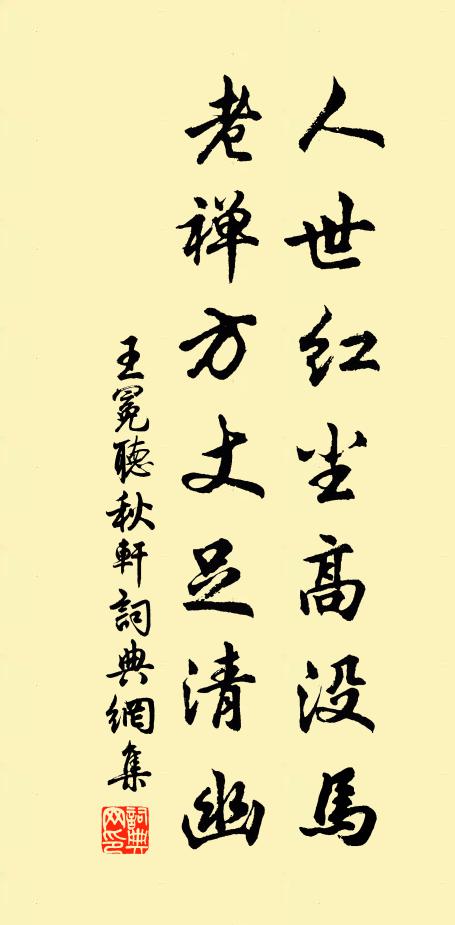 人世红尘高没馬
老禅方丈足清幽
王冕聽秋軒詞典網集
詞典網印